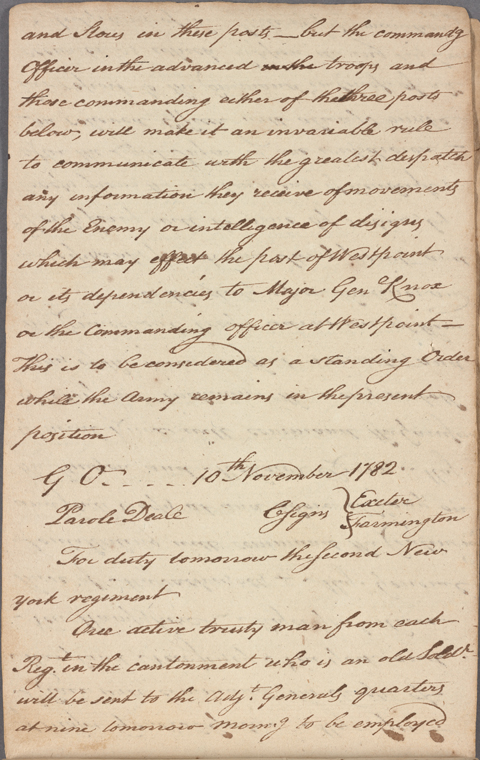 and Stores in these posts — but the commandg
Officer in the advanced troops and
those commanding either of the three posts
below, will make it an invariable rule
to communicate with the greatest despatch
any information they receive of movements
of the Enemy or intelligence of disigns
which may effect the post of Westpoint
or its dependencies to Major Genl Knox
or the Commanding officer at Westpoint —
This is to be considered as a standing Order
while the Army remains in the present
position
G O. . . . . . 10th November 1782
Parole Deale Csigns } Exeter
Farmington
For duty tomorrow the second New
york regiment
One active trusty man from each
Regt. in the cantonment who is an old Soldr.
will be sent to the Adjt. Generals quarters
at nine tomorrow morng to be employed